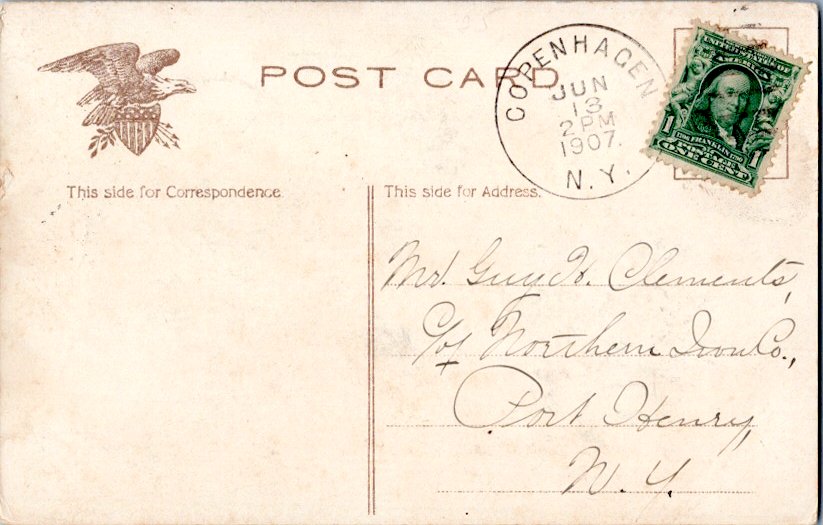 POST CARD
COPENHAGEN
JUN
13
2 PM
1907.
N. Y.
UNITED STATES OF
AMERICA
1706 FRANKLIN 1790
1 POSTAGE 1
ONE CENT
This side for Correspondence.
This side for Address.
Mr. Guy H. Clements,
c/o Northern Iron Co.,
Port Henry,
N. Y.